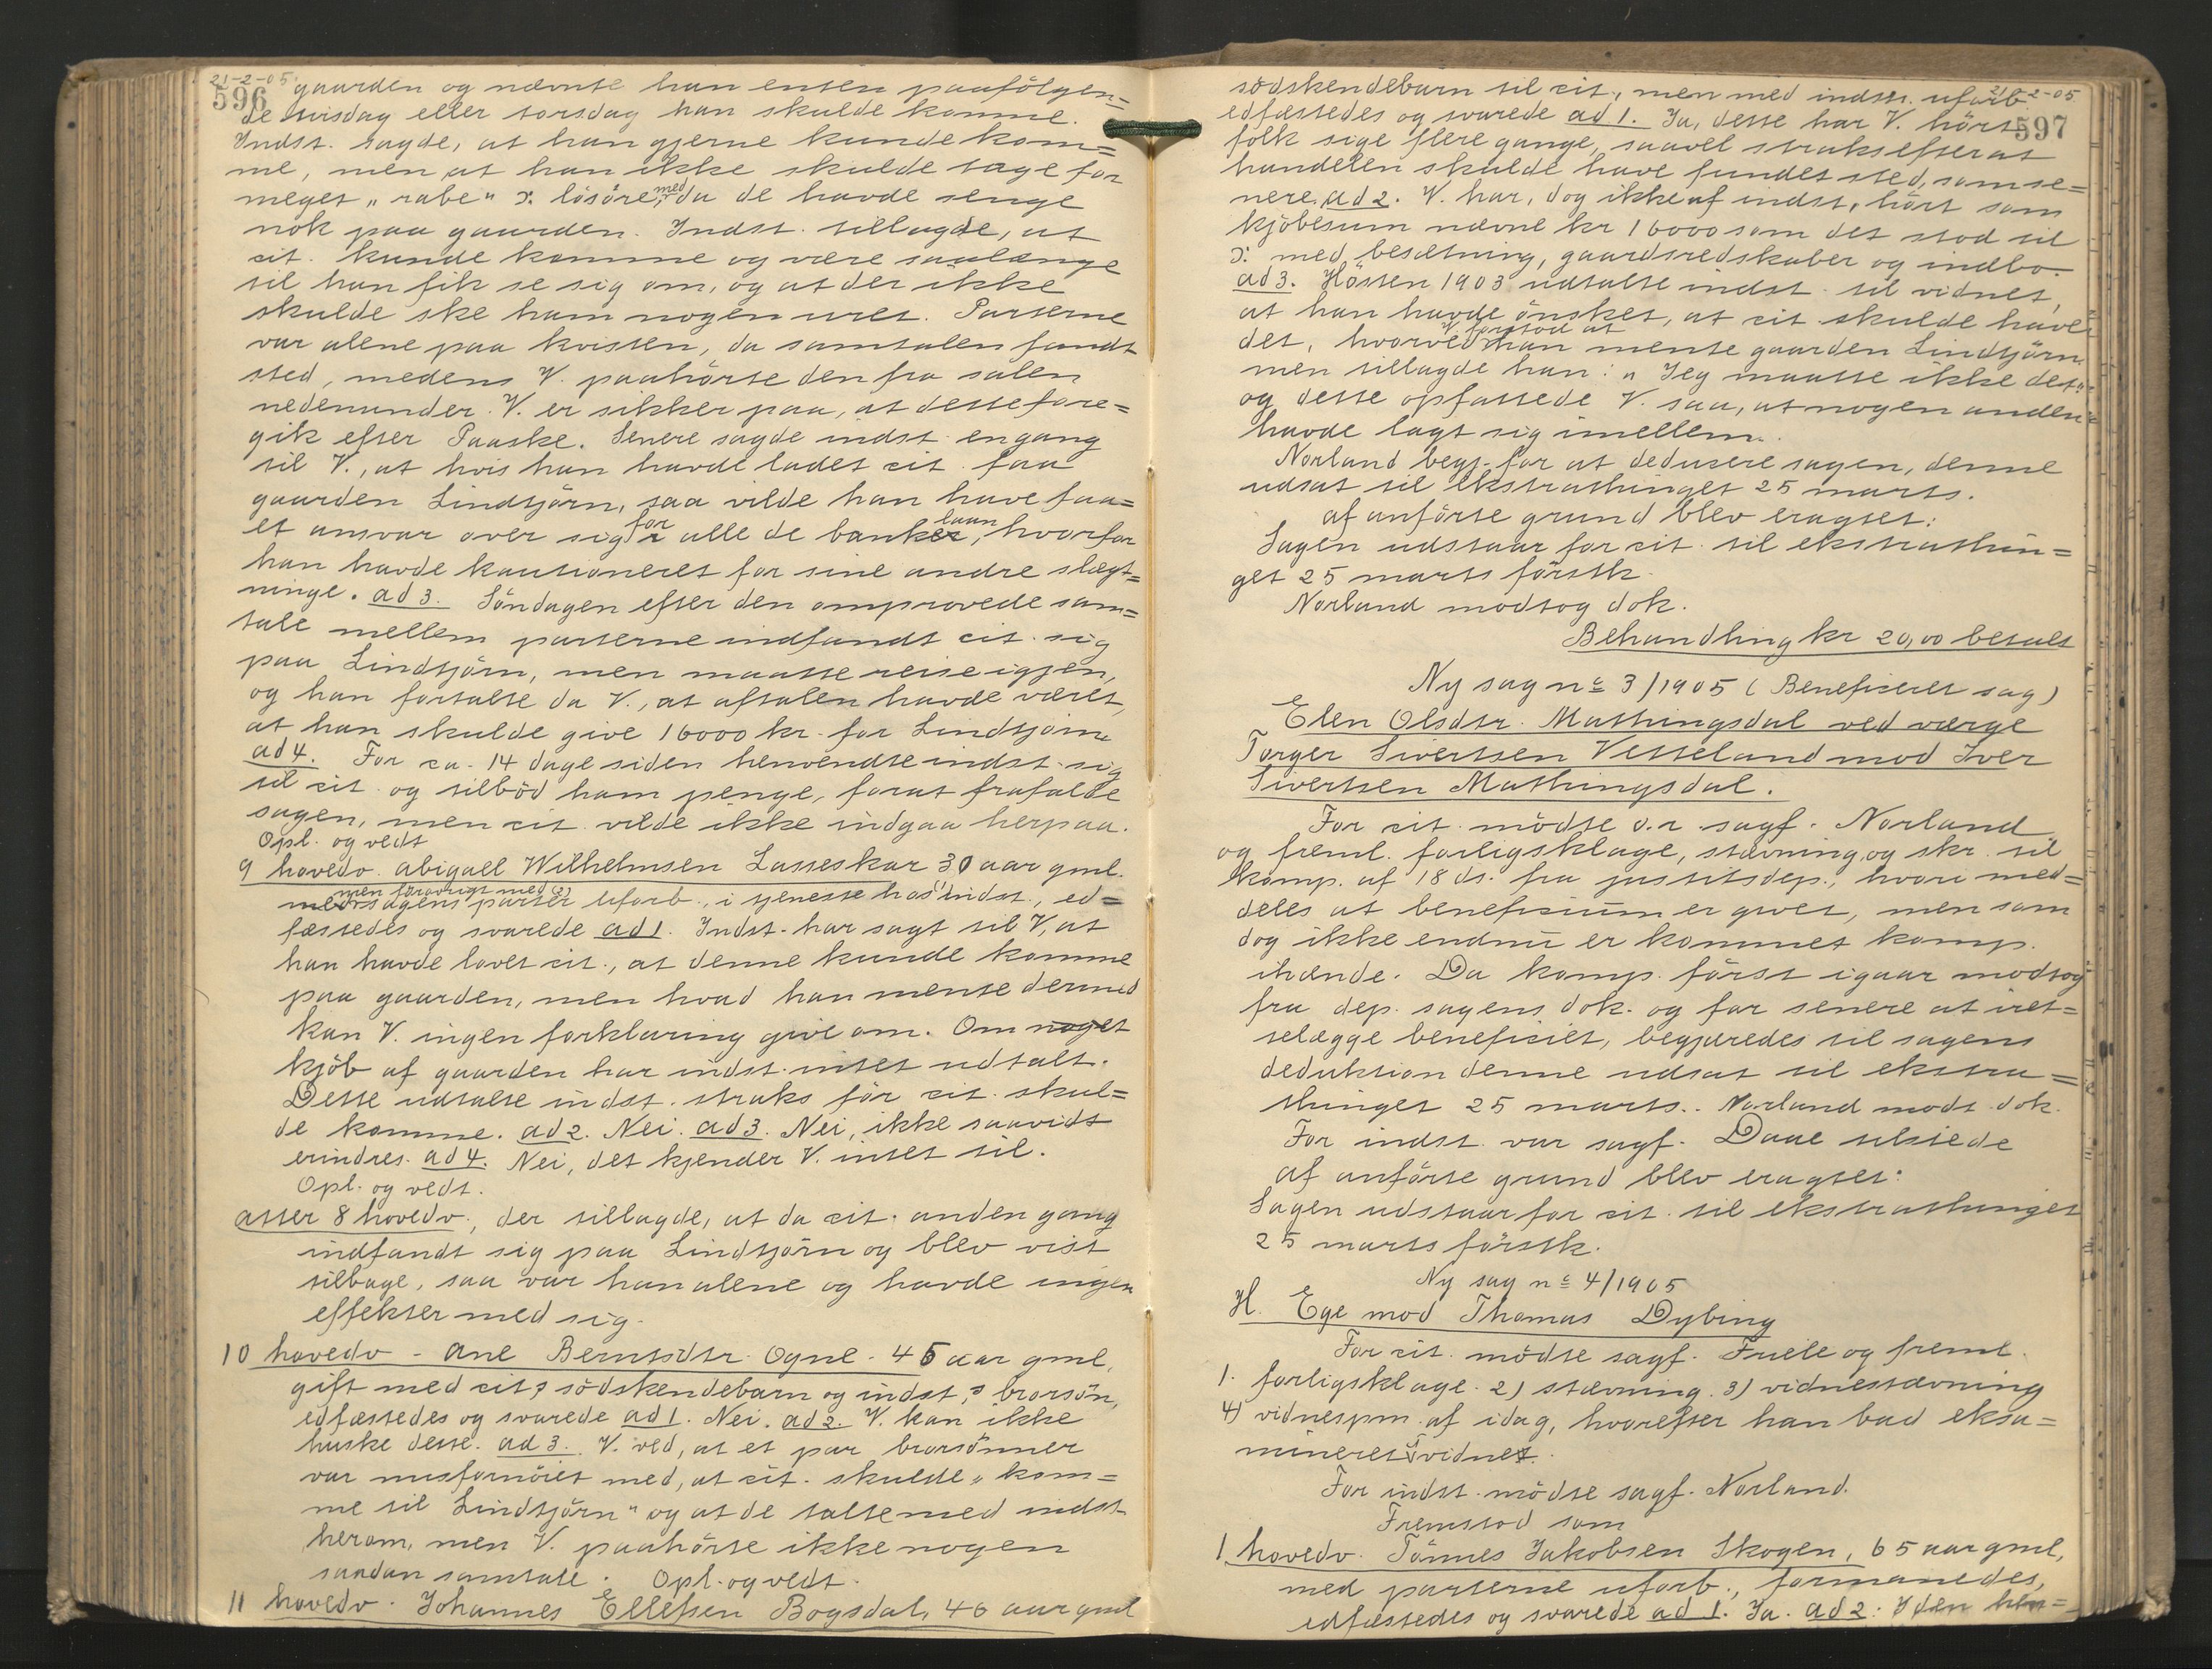 21-2-05.
596
gaarden og nævnte han enten paafölgen=
de tirsdag eller torsdag han skulde komme.
Indst. sagde, at han gjerne kunde kom=
me, men at han ikke skulde tage for
meget "rabe" ɔ: lösöre med, da de havde senge
nok paa gaarden. Indst. tillagde, at
cit. kunde komme og være saalænge
til han fik se sig om, og at der ikke
skulde ske ham nogen uret. Parterne
var alene paa kvisten, da samtalen fandt
sted, medens V. paahörte den fra salen
nedenunder. V. er sikker paa, at dette fore=
gik efter Paaske. Senere sagde indst. engang
til V., at hvis han havde ladet cit. faa
gaarden Lindtjörn, saa vilde han have faa=
et ansvar over sig for alle de banklaan, hvorfor
han havde kautioneret for sine andre slægt=
ninge. ad 3. Söndagen efter den omprovede sam=
tale mellem parterne indfandt cit. sig
paa Lindtjörn, men maatte reise igjen,
og han fortalte da V., at aftalen havde været,
at han skulde give 16000 kr. for Lindtjörn
ad 4. For ca. 14 dage siden henvendte indst. sig
til cit. og tilböd ham penge, forat frafalde
sagen, men cit. vilde ikke indgaa herpaa.
Opl. og vedt
9 hovedv. Abigael Wilhelmsen Lasseskar 30 aar gml.
men forövrigt med sagens parter uforb., i tjeneste hos indst., ed=
fæstedes og svarede ad 1. Indst. har sagt til V, at
han havde lovet cit., at denne kunde komme
paa gaarden, men hvad han mente dermed
kan V. ingen forklaring give om. Om noget
kjöb af gaarden har indst. intet udtalt.
Dette udtalte indst. straks för cit. skul=
de komme. ad 2. Nei. ad 3. Nei, ikke saavidt
erindres. ad 4. Nei, det kjender V. intet til.
Opl. og vedt.
atter 8 hovedv., der tillagde, at da cit. anden gang
indfandt sig paa Lindtjörn og blev vist
tilbage, saa var han alene og havde ingen
effekter med sig.
10 hovedv - Ane Berntsdtr. Ogne - 45 aar gml,
gift med cit,s södskendebarn og indst,s brorsön,
edfæstedes og svarede ad 1. Nei. ad 2. V. kan ikke
huske dette. ad 3. V. ved, at et par brorsönner
var misfornöiet med, at cit. skulde "kom=
me til Lindtjörn" og at de talte med indst.
herom, men V. paahörte ikke nogen
saadan samtale. Opl. og vedt.
11 hovedv. Johannes Ellefsen Bogsdal, 46 aar gml
21-2-05
597
södskendebarn til cit., men med indst. uforb.
edfæstedes og svarede ad 1. Ja, dette har V. hört
folk sige flere gange, saavel straks efterat
handelen skulde have fundet sted, som se=
nere. ad 2. V. har, dog ikke af indst., hört som
kjöbesum nævne kr 16000 som det stod til
ɔ: med besætning, gaardsredskaber og indbo.
ad 3. Hösten 1903 udtalte indst. til vidnet,
at han havde önsket, at cit. skulde have
det, hvorved V. forstod at han mente gaarden Lindtjörn
men tillagde han: "Jeg maatte ikke det"
og dette opfattede V. saa, at nogen anden
havde lagt sig imellem.
Norland begj. for at deducere sagen, denne
udsat til ekstrathinget 25 marts.
af anförte grund blev eragtet:
Sagen udstaar for cit. til ekstrathin=
get 25 marts förstk.
Norland modtog dok.
Behandling kr 20,00 betalt
Ny sag no 3/1905 (Beneficeret sag)
Elen Olsdtr. Mathingsdal ved værge
Torger Sivertsen Vetteland mod Iver
Sivertsen Mathingsdal.
For cit. mödte o.r. sagf. Norland
og freml. forligsklage, stævning og skr. til
komp. af 18 ds. fra justitsdep., hvori med=
deles at beneficium er givet, men som
dog ikke endnu er kommet komp.
ihænde. Da komp. först igaar modtog
fra dep. sagens dok. og for senere at iret=
telægge beneficiet, begjæredes til sagens
deduktion denne udsat til ekstra=
thinget 25 marts. Norland modt. dok.
For indst. var sagf. Daae tilstede
af anförte grund blev eragtet:
Sagen udstaar for cit. til ekstrathinget
25 marts förstk.
Ny sag no 4/1905
H. Ege mod Thomas Dybing
For cit. mödte sagf. Friele og freml.
1. forligsklage. 2) stævning. 3) vidnestævning
4) vidnespm. af idag, hvorefter han bad eksa=
mineret vidne.
For indst. mödte sagf. Norland.
Fremstod som
1 hovedv. Tönnes Jakobsen Skogen, 65 aar gml,
med parterne uforb., formanedes,
edfæstedes og svarede ad 1. Ja. ad 2: I den